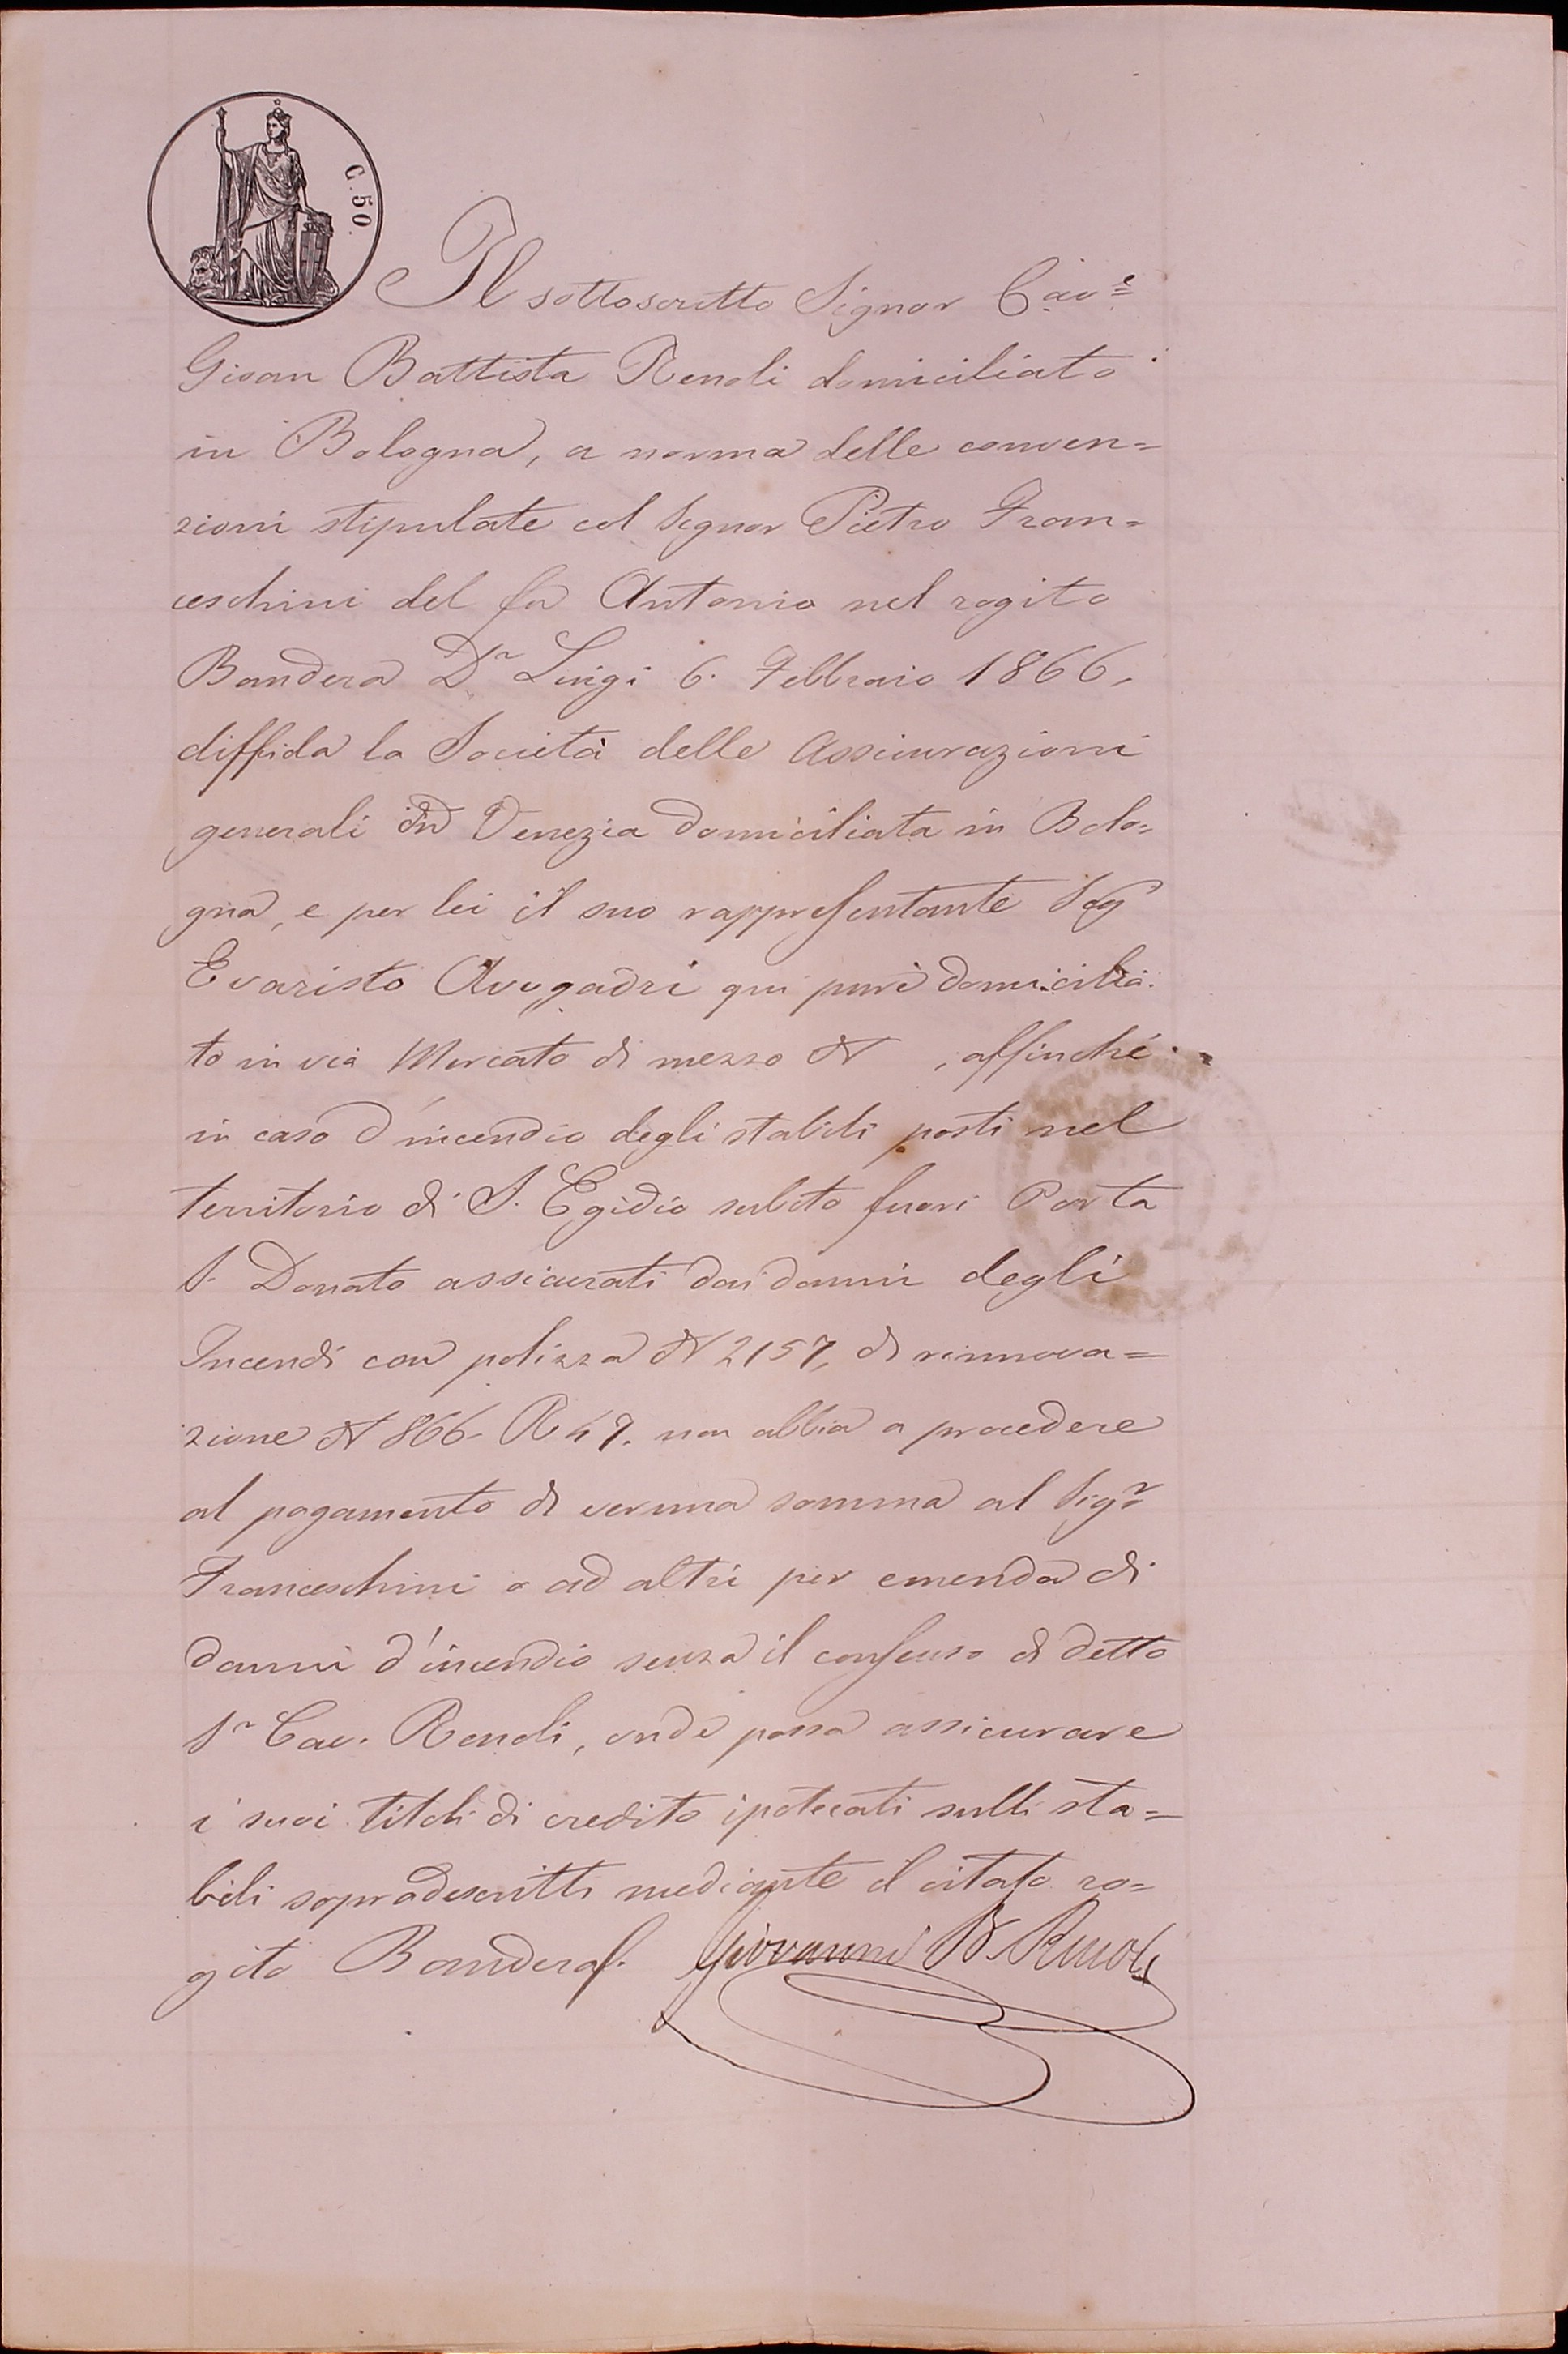 C. 50.
Il sottoscritto Signor Cav.e
Gioan Battista Renoli domiciliato
in Bologna, a norma delle conven=
zioni stipulate col Signor Pietro Fran=
ceschini del fu Antonio nel rogito
Bandera Dr Luigi 6. Febbraio 1866,
diffida la Società delle Assicurazioni
generali in Venezia domiciliata in Bolo=
gna, e per lei il suo rappresentante Sigr
Evaristo Avogadri qui pure domicilia=
to in via Mercato di mezzo N , affinché
in caso d'incendio degli stabili posti nel
territorio di S. Egidio subito fuori Porta
S. Donato assicurati dai danni degli
Incendi con polizza N 2157, di rinnova=
zione N 866- R 47. non abbia a procedere
al pagamento di veruna somma al Sigr
Franceschini o ad altri per emenda di
danni d'incendio senza il consenso di detto
Sr Cav. Renoli, onde possa assicurare
i suoi titoli di credito ipotecati sulli sta=
bili sopradescritti mediante il citato ro=
gito Bandera.
Giovanni B. Renoli